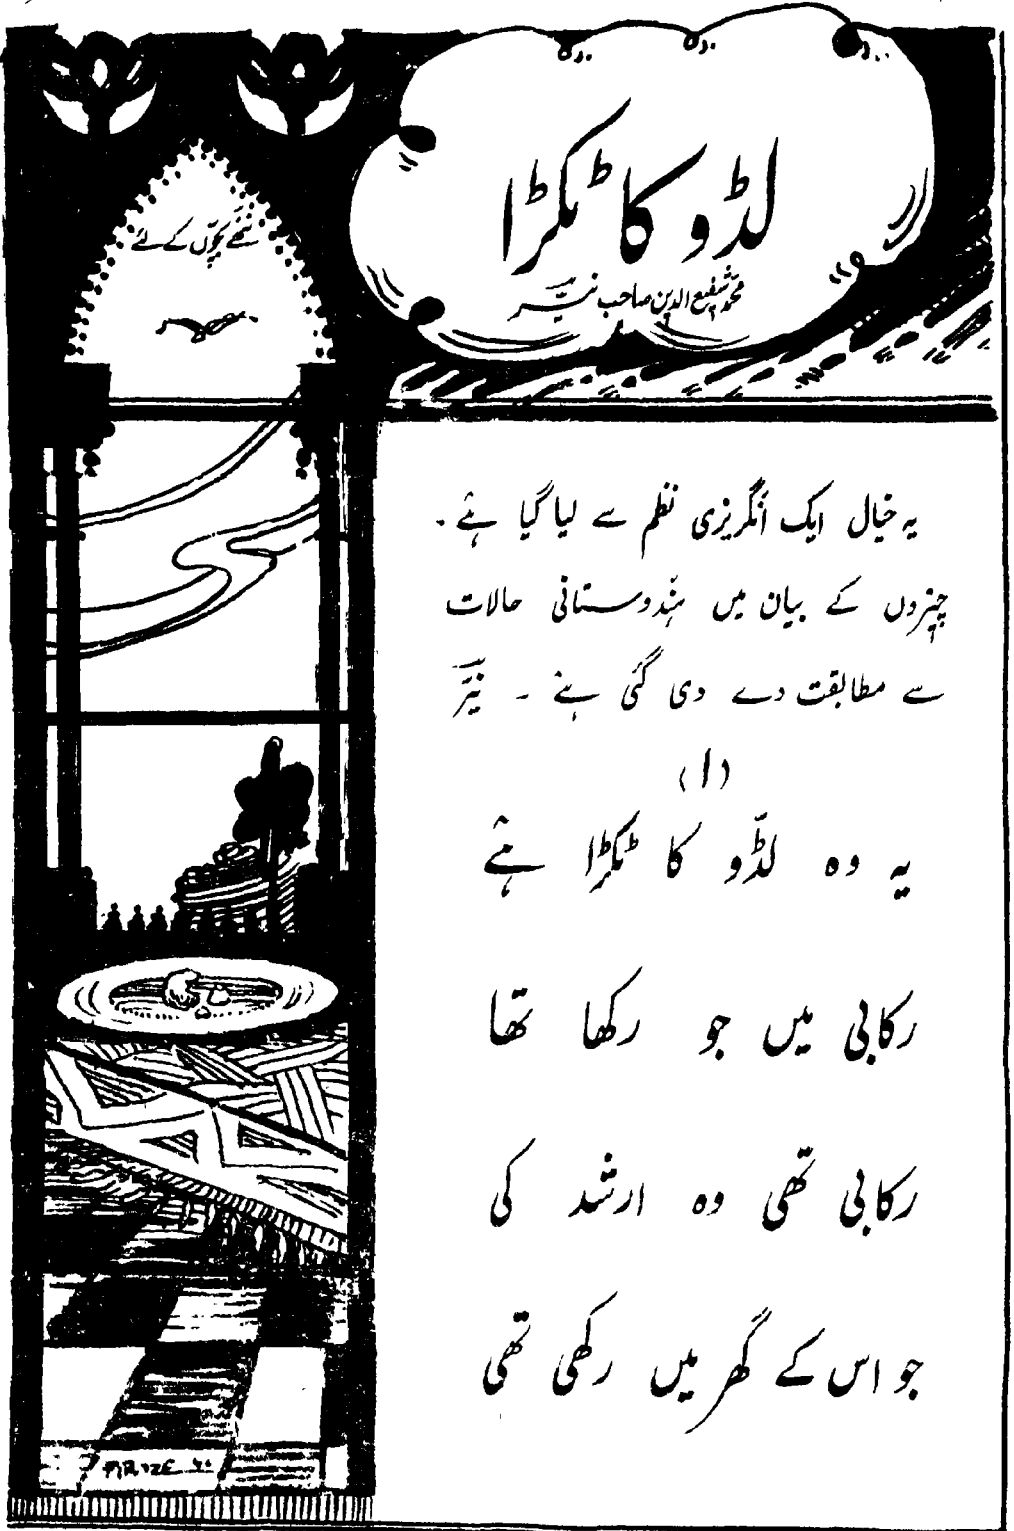 لڈو کا ٹکڑا
محمد شفیع الدین صاحب نیّر
ننھے بچّوں کے لئے
یہ خیال ایک انگریزی نظم سے لیا گیا ہے۔
چیزوں کے بیان میں ہندوستانی حالات
سے مطابقت دے دی گئی ہے ۔ نیّر
(۱)
یہ وہ لڈّو کا ٹکڑا ہے
رکابی میں جو رکھا تھا
رکابی تھی وہ ارشد کی
جو اس کے گھر میں رکھی تھی